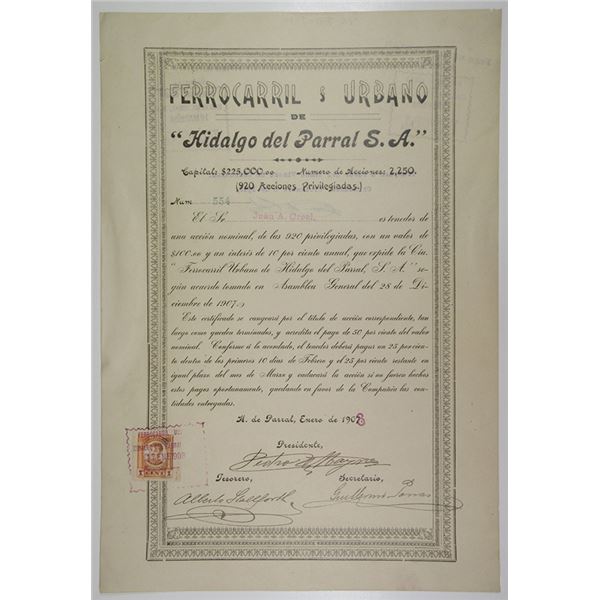 FERROCARRIL S URBANO
DE
"Hidalgo del Parral S. A."
Capital: $225,000.00 Numero de Acciones: 2,250.
(920 Acciones Privilegiadas.)
Num 554
El Sr Juan A. Creel, es tenedor de
una acción nominal, de las 920 privilegiadas, con un valor de
$100.00 y un interés de 10 por ciento anual, que expide la Cía.
"Ferrocarril Urbano de Hidalgo del Parral, S. A." se-
gún acuerdo tomado en Asamblea General del 28 de Di-
ciembre de 1907.
Este certificado se cangeará por el título de acción correspondiente, tan
luego como queden terminados, y acredita el pago de 50 por ciento del valor
nominal. Conforme á lo acordado, el tenedor deberá pagar un 25 por cien-
to dentro de los primeros 10 días de Febrero y el 25 por ciento restante en
igual plazo del mes de Marzo y caducará la acción si no fueren hechos
estos pagos oportunamente, quedando en favor de la Compañía las can-
tidades entregadas.
H. de Parral, Enero de 1908
Presidente,
Pedro
Tesorero, Secretario,
Alberto Stallforth Guillermo Porras
FERROCARRIL